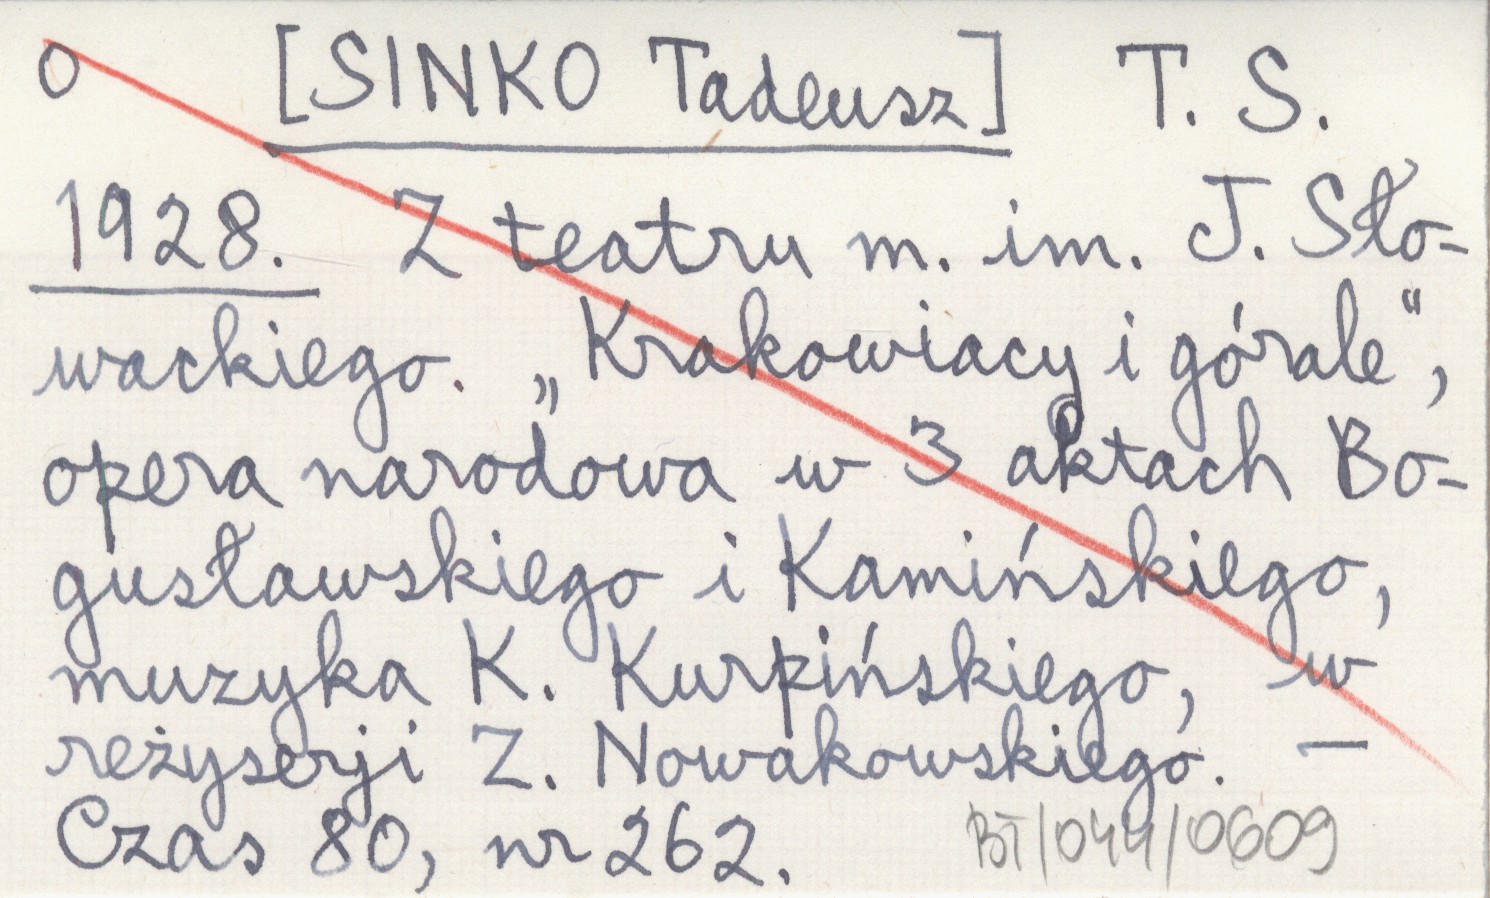 o [SINKO Tadeusz] T. S.
1928. Z teatru m. im. J. Sło-
wackiego. „Krakowiacy i górale“,
opera narodowa w 3 aktach Bo-
gusławskiego i Kamińskiego,
muzyka K. Kurpińskiego, w
reżyserji Z. Nowakowskiego. —
Czas 80, nr 262.
BT/044/0609